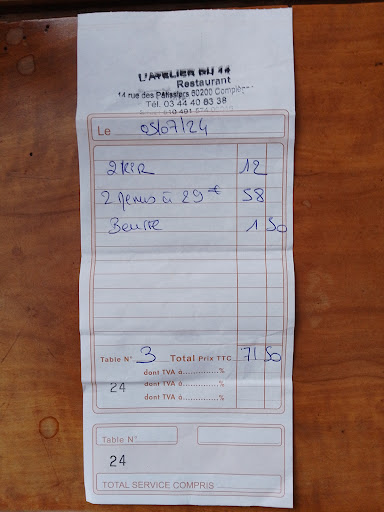 L'ATELIER DU 14
Restaurant
14 rue des Pâtissiers 60200 Compiègne
Tél. 03 44 40 83 38
Le 05/07/24
2 KIR 12
2 Menus à 29€ 58
Beurre 1 50
Table N° 3 Total Prix TTC 71 50
dont TVA à..............%
24 dont TVA à..............%
dont TVA à..............%
Table N°
24
TOTAL SERVICE COMPRIS